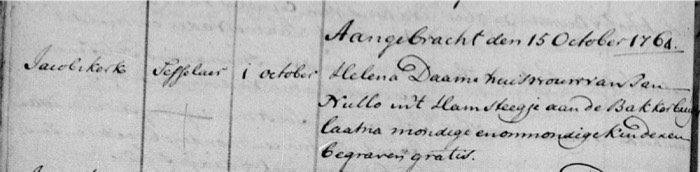 Aangebracht den 15 October 1764.
Jacobskerk Teffelaer i october Helena Daame huisvrouw van Jan
Nullo uit Ham steegje aan de Bakker
laatna mondige en onmondige kinderen
begraven gratis.